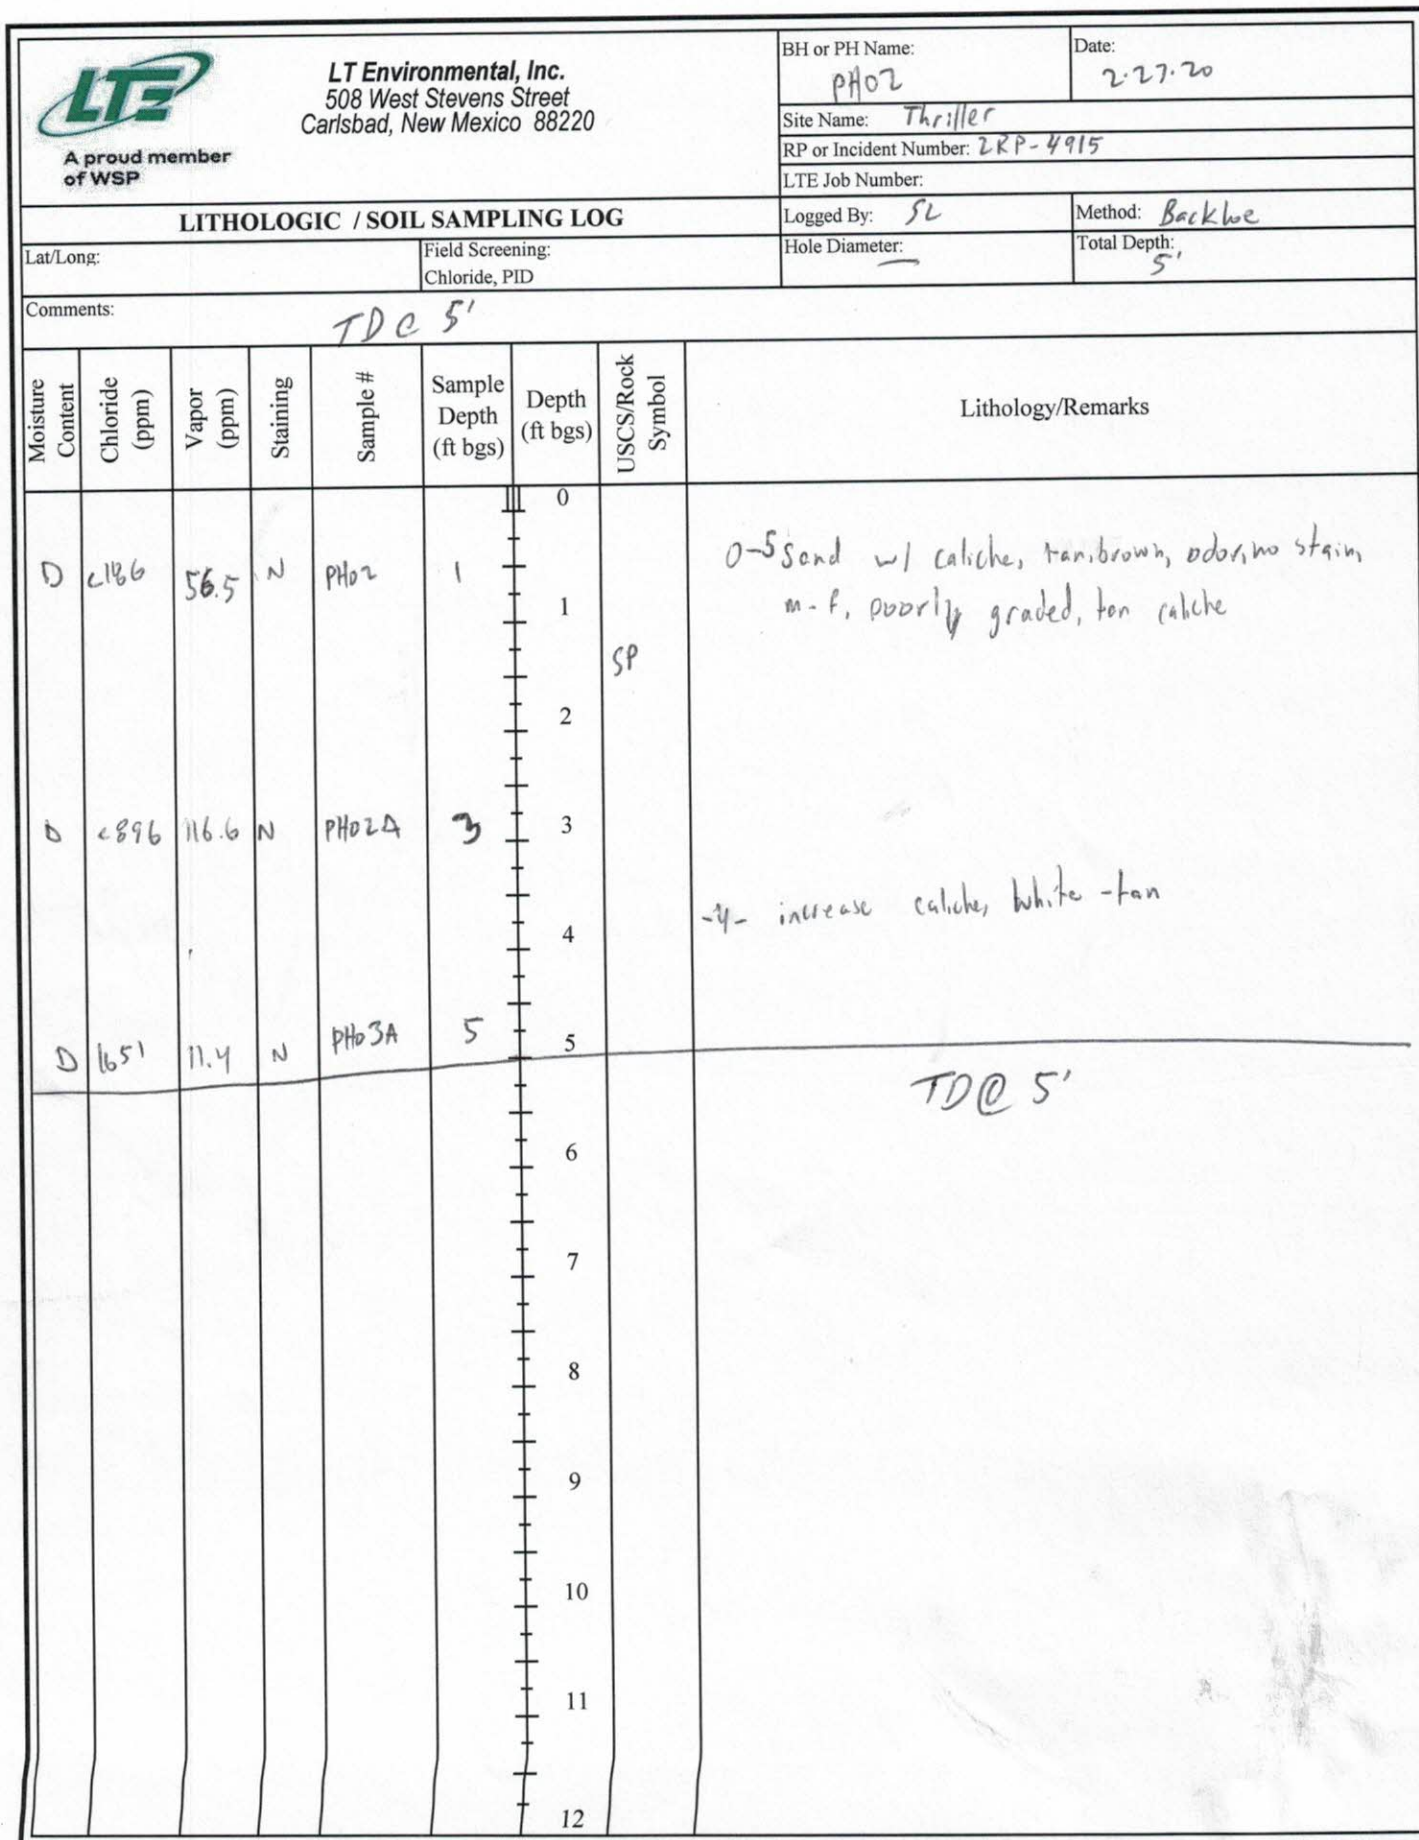 LTE
A proud member
of WSP
LT Environmental, Inc.
508 West Stevens Street
Carlsbad, New Mexico 88220
BH or PH Name:
PH02
Date:
2.27.20
Site Name: Thriller
RP or Incident Number: 2RP-4915
LTE Job Number:
LITHOLOGIC / SOIL SAMPLING LOG
Logged By: SL
Method: Backhoe
Lat/Long:
Field Screening:
Chloride, PID
Hole Diameter: —
Total Depth:
5'
Comments:
TD @ 5'
Moisture
Content
Chloride
(ppm)
Vapor
(ppm)
Staining
Sample #
Sample
Depth
(ft bgs)
Depth
(ft bgs)
USCS/Rock
Symbol
Lithology/Remarks
0
0-5 Sand w/ caliche, tan.brown, odor, no stain,
D <186 56.5 N PH02 1
1
m-f, poorly graded, tan caliche
SP
2
D <896 116.6 N PH02A 3 3
-4- increase caliche, white-tan
4
D 1651 11.4 N PH03A 5 5
TD@ 5'
6
7
8
9
10
11
12